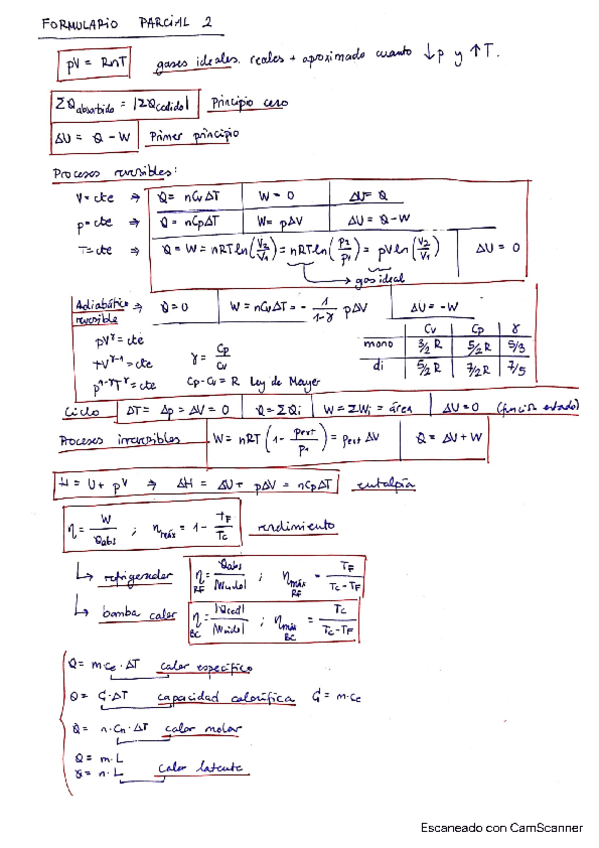 FORMULARIO PARCIAL 2
pV = RnT gases ideales. reales + aproximado cuanto ↓p y ↑T.
ΣQabsorbido = |ΣQcedido| Principio cero
ΔU = Q - W Primer principio
Procesos reversibles:
V=cte ⇒ Q= nCvΔT W = 0 ΔU= Q
p=cte ⇒ Q = nCpΔT W= pΔV ΔU = Q-W
T=cte ⇒ Q = W = nRT ln(V2/V1) = nRT ln(p2/p1) = pV ln(V2/V1) ΔU = 0
→ gas ideal
Adiabático reversible ⇒ Q=0 W = nCvΔT = - 1/1-γ pΔV ΔU = -W
Cv Cp γ
pV^γ = cte mono 3/2 R 5/2 R 5/3
TV^γ-1 = cte γ = Cp/Cv di 5/2 R 7/2 R 7/5
p^1-γ T^γ = cte Cp-Cv = R Ley de Mayer
Ciclo ΔT = Δp = ΔV = 0 Q = ΣQi W = ΣWi = área ΔU=0 (función estado)
Procesos irreversibles W = nRT (1 - pext/p1) = pext ΔV Q = ΔU + W
H = U + pV ⇒ ΔH = ΔU + pΔV = nCpΔT entalpía
η = W/Qabs ; ηmáx = 1 - TF/TC rendimiento
↳ refrigerador ηRF = Qabs/|Wcedido| ; ηmáx RF = TF/TC-TF
↳ bomba calor ηBC = |Qced|/|Wcedido| ; ηmáx BC = TC/TC-TF
Q = m·ce·ΔT calor específico
Q = C·ΔT capacidad calorífica C = m·ce
Q = n·Cn·ΔT calor molar
Q = m·L
Q = n·L calor latente
Escaneado con CamScanner